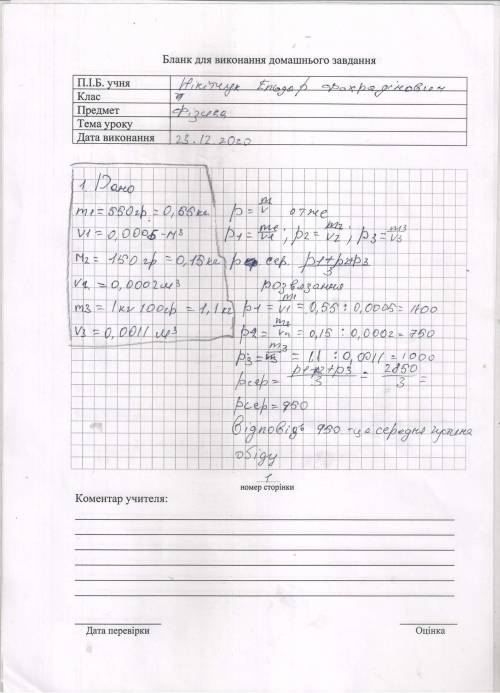 Бланк для виконання домашнього завдання
П.І.Б. учня Нікітчук
Клас
Предмет Фізика
Тема уроку
Дата виконання 23.12.2020
1. Дано
m1 = 550гр = 0,55кг
V1 = 0,0005 м³
m2 = 150гр = 0,15кг
V2 = 0,0002 м³
m3 = 1кг 100гр = 1,1кг
V3 = 0,0011 м³
p = m/V отже
p1 = m1/V1 ; p2 = m2/V2 , p3 = m3/V3
p сер. p1+p2+p3/3
розвязання
p1 = m1/V1 = 0,55 : 0,0005 = 1100
p2 = m2/V2 = 0,15 : 0,0002 = 750
p3 = m3/V3 = 1,1 : 0,0011 = 1000
pсер = p1+p2+p3/3 = 2850/3 =
pсер = 950
Відповідь 950 - це середня густина
обіду
1
номер сторінки
Коментар учителя:
Дата перевірки Оцінка